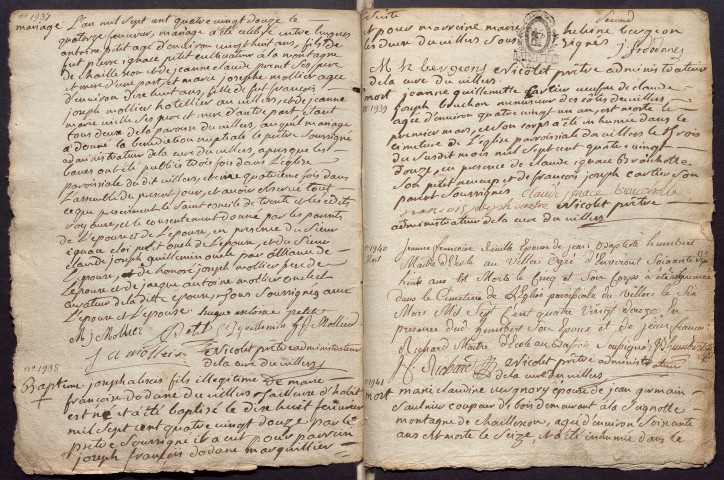 n° 1937
mariage L'an mil sept cent quatre vingt douze le
quatorze fevrier, mariage a été celebré entre hugues
antoine petit agé d'environ vingt huit ans, fils de
feu pierre ignace petit cultivateur a la montagne
de chaillexon et de jeanne claude ses pere
et mere d'une part, et marie josephe mollier agée
d'environ dix huit ans, fille de feu françois
joseph mollier hotellier au villers, et de jeanne
marie ses pere et mere d'autre part, etant
tous deux de la paroisse du villers, auquel mariage
a donné la benediction nuptiale le prêtre soussigné
administrateur de la cure du villers, apres que les
bans ont été publiés trois fois dans l'église
paroissiale du dit villers, et une quatrieme fois dans
l'assemblé du present jour, et avoir observé tout
ce que prescrivent le saint concile de trente et les edits
royaux, et le consentement donné par les parents
de l'epoux et de l'epouse, en presence du sieur
ignace eloi petit oncle de l'epoux, et du sieur
claude joseph guillemin oncle par alliance de
l'epouse, et de honoré joseph mollier frere de
l'epouse et de jacque antoine mollier oncle et
curateur de la ditte epouse, tous soussignés avec
l'epoux et l'epouse. hugue antoine petit
M j Mollier Petit C J guillemin h J Mollier
J a mollier Nicolet prêtre administrateur
de la cure du villers
n° 1938
Baptême joseph alexis fils illegitime de marie
françoise dodane du villers tailleuse d'habit
est né et a été baptisé le dix huit fevrier
mil sept cent quatre vingt douze par le
prêtre soussigné il a eut pour parrein
joseph françois dodane marguillier
Suite second
et pour marreine marie helene bergeon
les deux du villers soussignés j f dodane
M h bergeons Nicolet prêtre administrateur
de la cure du villers
mort jeanne guillemette cartier veufve de claude
n° 1939 joseph bouchon menuisier des cotes du villers
agée d'environ quatre vingt un an, est morte le
premier mars, et son corps a été inhumé dans le
cimetiere de l'église paroissiale du villers le trois
du susdit mois mil sept cent quatre vingt
douze, en presence de claude ignace
son petit neveu, et de françois joseph cartier son
parent soussignés claude ignace
françois joseph cartier Nicolet prêtre
administrateur de la cure du villers
n° 1940
Mort Jeanne françoise épouse de jean Baptiste humbert
Maitre d'Ecole au Villers agée d'environs soixante dix
huits ans Est Morte le cinq et son corps a été inhumé
dans le Cimetiere de l'Eglise paroissiale du Villers le six
Mars Mil Sept Cent quatre Vingt douze en
presence dud humbert son époux et de jean françois
Richard Maitre d'Ecole soussignés J B humbert
j f Richard Nicolet prêtre administrateur
de la cure du villers
n° 1941
mort marie claudine vergnory épouse de jean germain
saulnier coupeur de bois demeurant a la
montagne de chaillexon, agée d'environ soixante
ans est morte le seize, et a été inhumée dans le